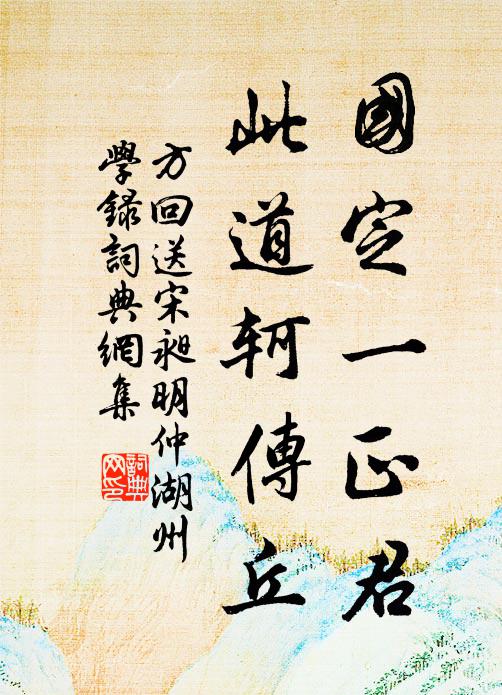 國定一正君
此道軻傳丘
方回送宋昶明仲湖州
學録詞典網集
詞典
网印